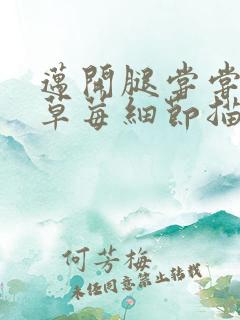 邁開腿嘗嘗
草莓細節描
何芳梅
未经同意禁止转载